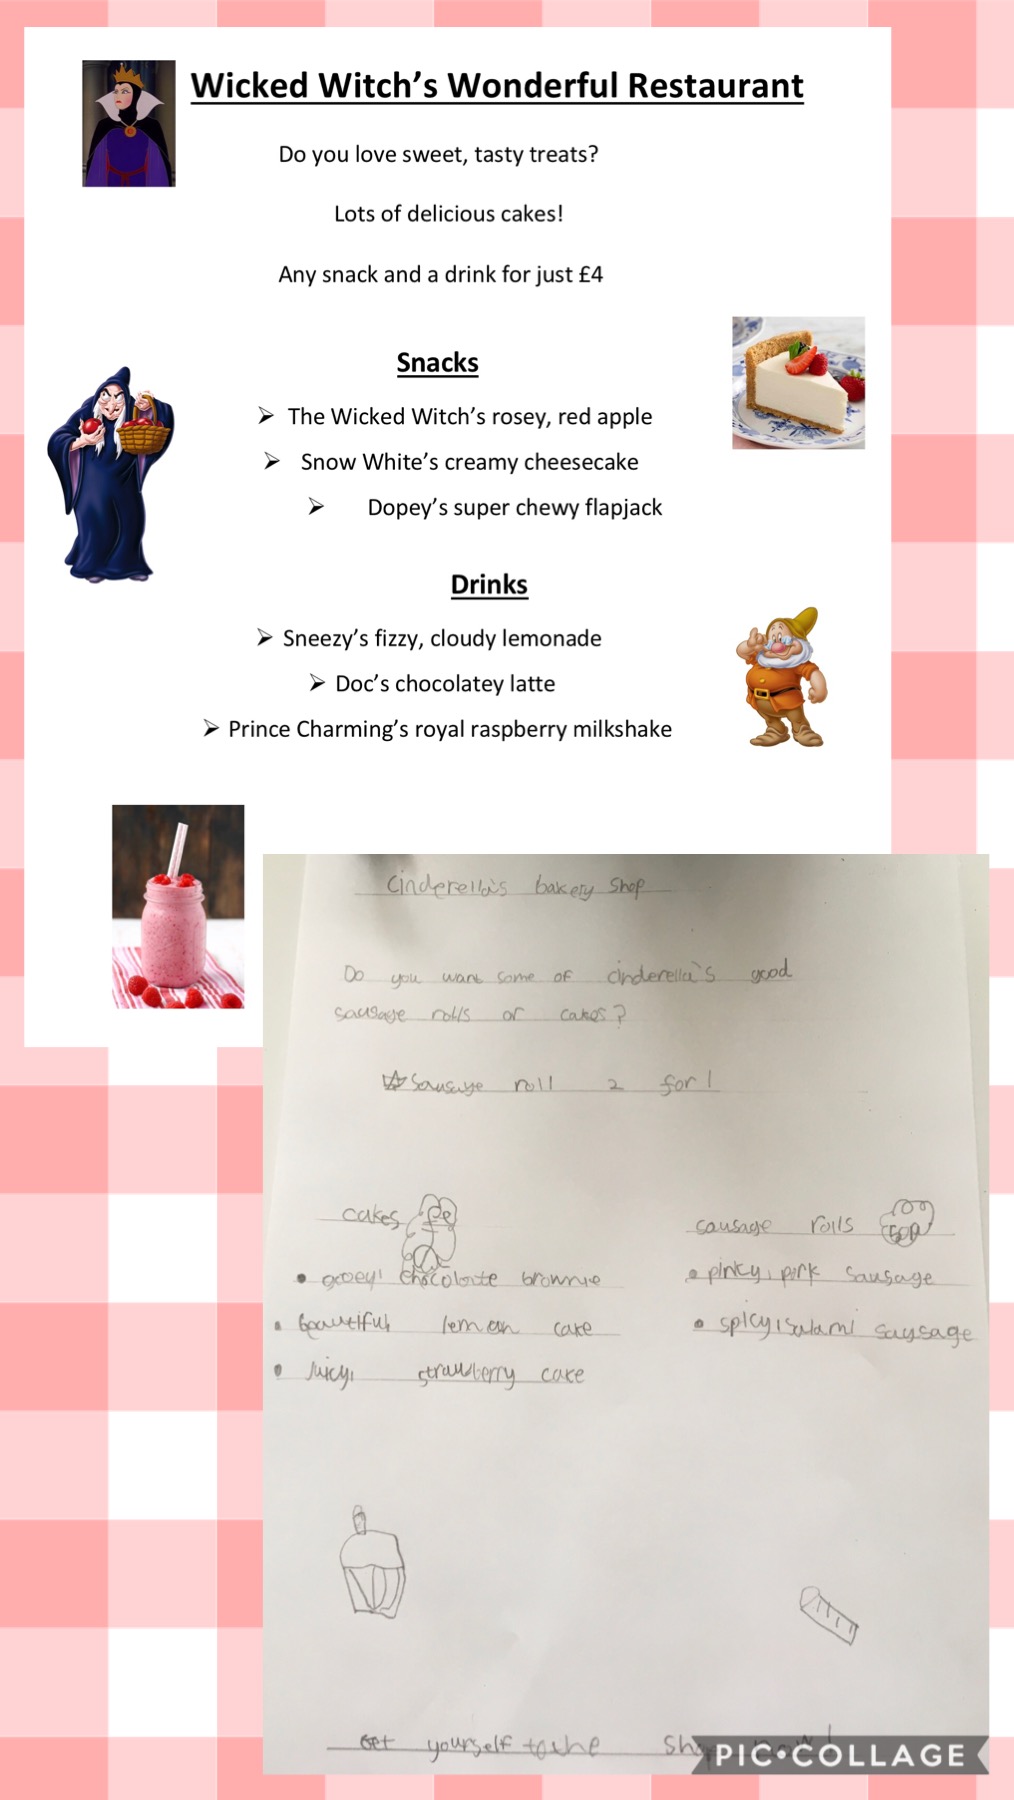 Wicked Witch's Wonderful Restaurant
Do you love sweet, tasty treats?
Lots of delicious cakes!
Any snack and a drink for just £4
Snacks
➢ The Wicked Witch's rosey, red apple
➢ Snow White's creamy cheesecake
➢ Dopey's super chewy flapjack
Drinks
➢ Sneezy's fizzy, cloudy lemonade
➢ Doc's chocolatey latte
➢ Prince Charming's royal raspberry milkshake
Cinderella's bakery shop
Do you want some of cinderella's good
sausage rolls or cakes?
☆ Sausage roll 2 for 1
cakes
• gooey, chocolate brownie
• beautiful, lemon cake
• Juicy, strawberry cake
sausage rolls
• pinky, pork sausage
• spicy, salami sausage
Get yourself to the shop now!
PIC•COLLAGE